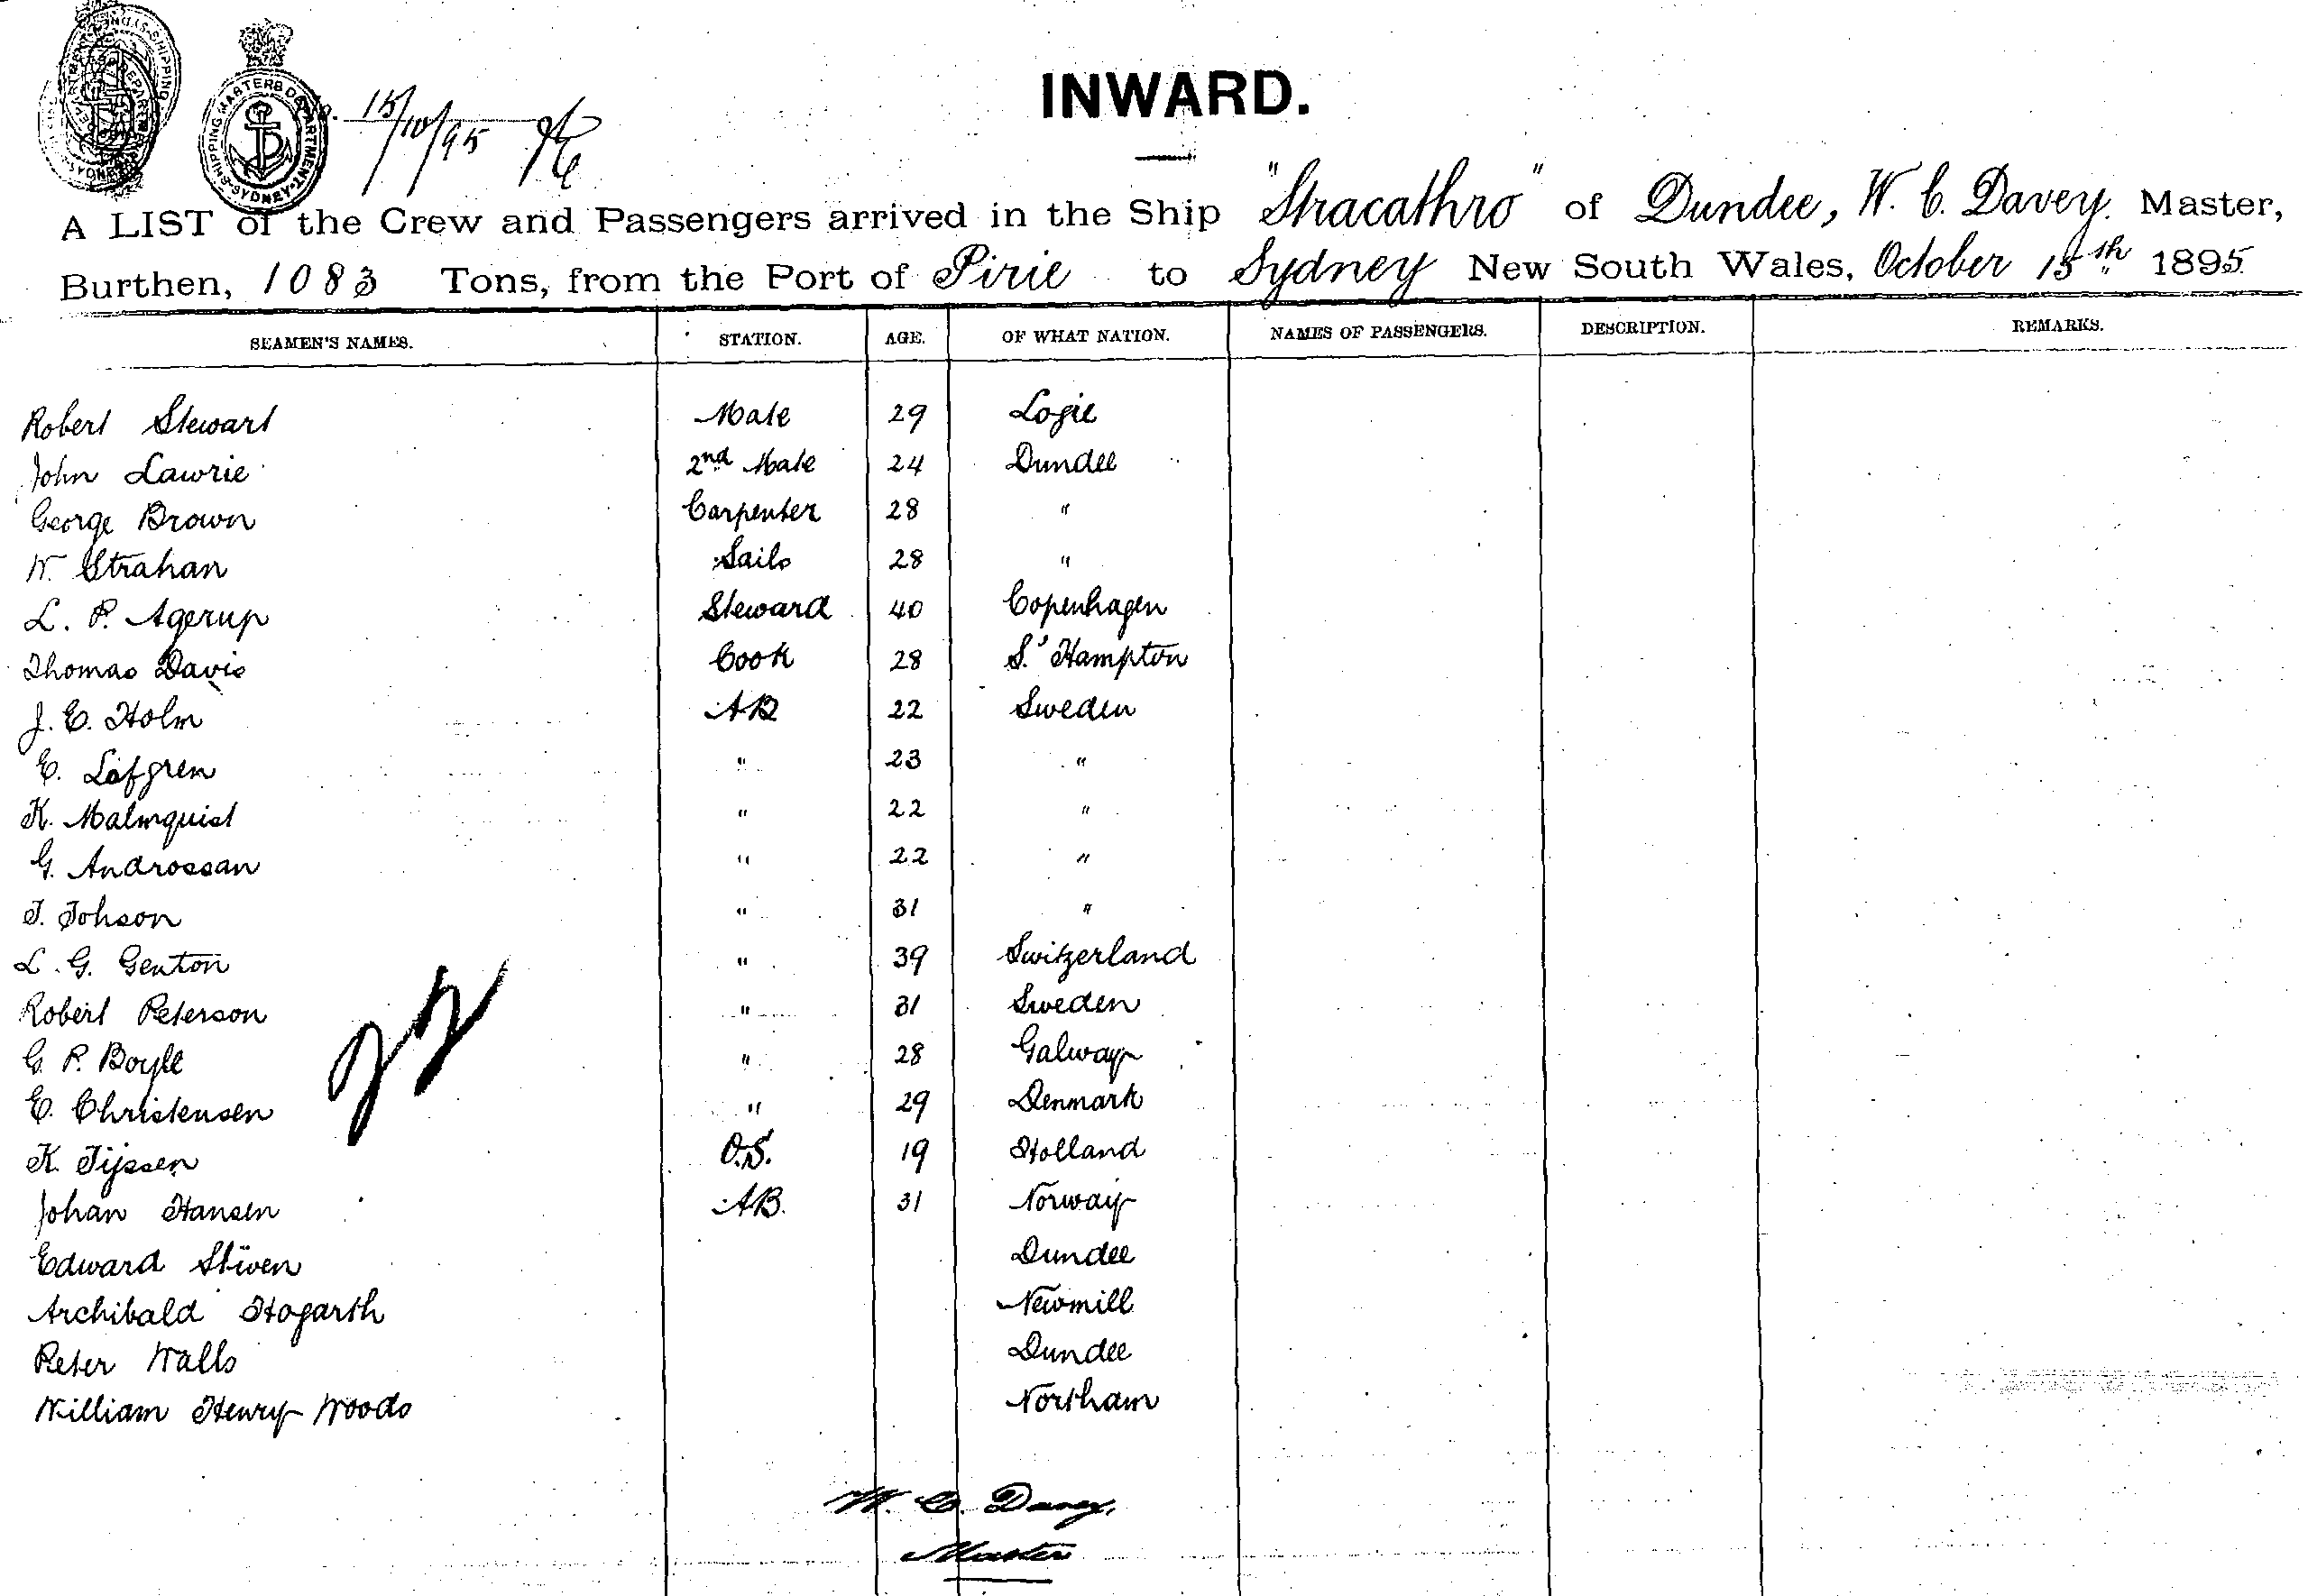 SHIPPING MASTERS DEPARTMENT SYDNEY
15/10/95
INWARD.
A LIST of the Crew and Passengers arrived in the Ship "Stracathro" of Dundee, W. C. Davey. Master,
Burthen, 1083 Tons, from the Port of Pirie to Sydney New South Wales, October 15th 1895
SEAMEN'S NAMES. STATION. AGE. OF WHAT NATION. NAMES OF PASSENGERS. DESCRIPTION. REMARKS.
Robert Stewart Mate 29 Logie
John Lawrie 2nd Mate 24 Dundee
George Brown Carpenter 28 "
W. Strahan Sails 28 "
L. P. Agerup Steward 40 Copenhagen
Thomas Davis Cook 28 S.' Hampton
J. E. Holm AB 22 Sweden
E. Löfgren " 23 "
K. Malmquist " 22 "
G. Androssan " 22 "
J. Johson " 31 "
L. G. Genton " 39 Switzerland
Robert Peterson " 31 Sweden
G. P. Boyle " 28 Galway
E. Christensen " 29 Denmark
K. Tijssen O.S. 19 Holland
Johan Hansen AB. 31 Norway
Edward Stiven Dundee
Archibald Hogarth Newmill
Peter Walls Dundee
William Henry Woods Northam
W. C. Davey,
Master